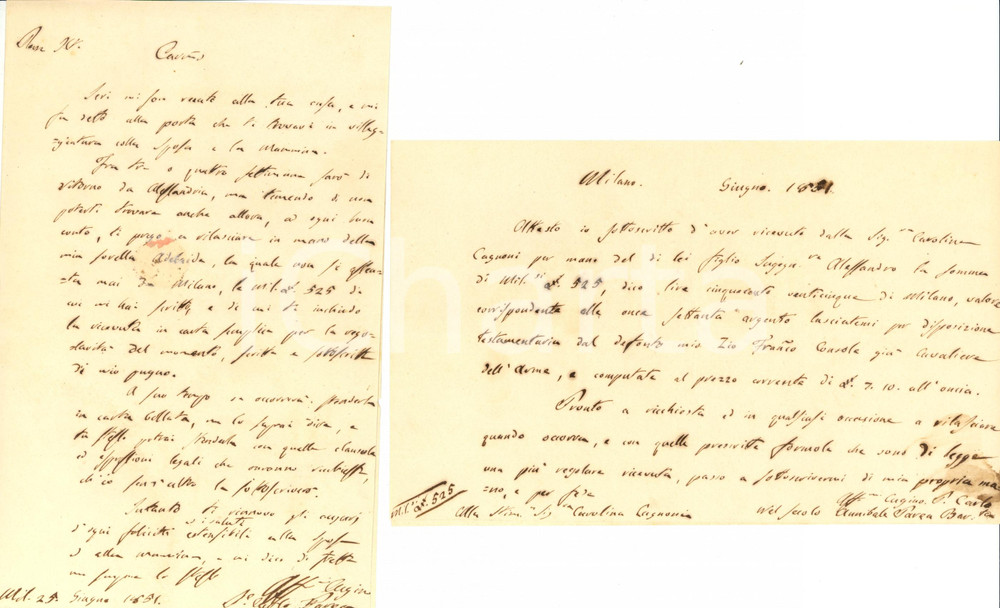 Carino
Ieri mi son recato alla tua casa, e mi
fu detto alla porta che ti trovavi in villeg-
-giatura colla sposa e la mammina.
Fra tre o quattro settimane sarò di
ritorno da Alessandria, ma temendo di non
poterti trovare anche allora, ad ogni buon
conto, ti prego a rilasciare in mano della
mia sorella Adelaida, la quale non si assen-
-ta mai da Milano, le Mil. £. 525 di
cui mi hai scritto e di cui ti inchiudo
la ricevuta in carta semplice per la rego-
-larità del momento, scritta e sottoscritta
di mio pugno.
A suo tempo se occorrerà stenderla
in carta bollata, me lo saprai dire, e
tu stesso potrai stenderla con quelle clausole
ed espressioni legali che verranno richieste,
ch'io senz'altro la sottoscriverò.
Intanto ti rinnovo gli auguri
d'ogni felicità e salute estensibile alla sposa
ed alla mammina, e mi dico di fretta
Aff. Cugino
Mil. 25. Giugno 1851. Carlo Parea
Milano. Giugno. 1851.
Attesto io sottoscritto d'aver ricevuto dalla Sig.ra Carolina
Cagnoni per mano del di lei figlio Alessandro la somma
di Mil. £. 525, dico lire cinquecento venticinque di Milano, valore
corrispondente alle once settanta argento lasciatemi per disposizione
testamentaria dal defonto mio Zio Franco Consola già Cavaliere
dell'Arma, e computate al prezzo corrente di £. 7. 10. all'oncia.
Pronto a richiesta ed in qualsiasi occasione a rilasciare
quando occorra, e con quelle prescritte formole che sono di legge
una più regolare ricevuta, passo a sottoscrivermi di mia propria ma-
-no, e per fede
Mil. £. 525
Aff.mo Cugino. P. Carlo
Alla Stim. Sig.ra Carolina Cagnoni
Nel secolo Annibale Parea
Charta